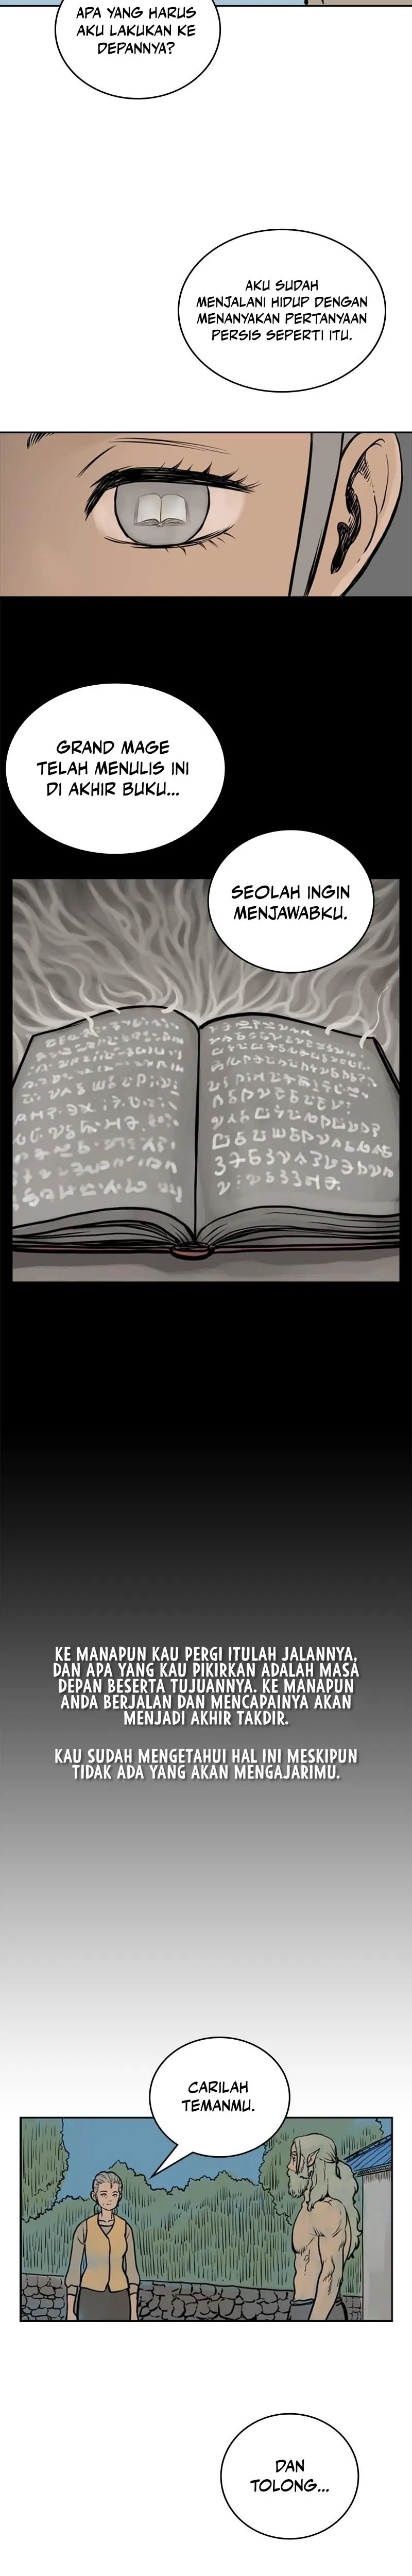 APA YANG HARUS
AKU LAKUKAN KE
DEPANNYA?
AKU SUDAH
MENJALANI HIDUP DENGAN
MENANYAKAN PERTANYAAN
PERSIS SEPERTI ITU.
GRAND MAGE
TELAH MENULIS INI
DI AKHIR BUKU...
SEOLAH INGIN
MENJAWABKU.
KE MANAPUN KAU PERGI ITULAH JALANNYA,
DAN APA YANG KAU PIKIRKAN ADALAH MASA
DEPAN BESERTA TUJUANNYA. KE MANAPUN
ANDA BERJALAN DAN MENCAPAINYA AKAN
MENJADI AKHIR TAKDIR.
KAU SUDAH MENGETAHUI HAL INI MESKIPUN
TIDAK ADA YANG AKAN MENGAJARIMU.
CARILAH
TEMANMU.
DAN
TOLONG...